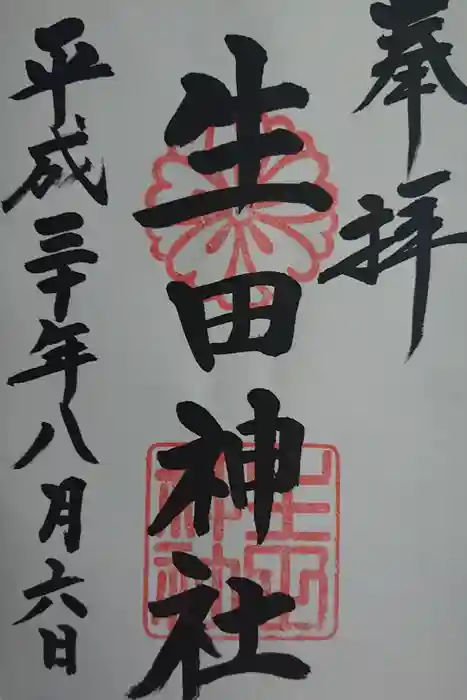 奉拝
生田神社
平成三十年八月六日
生田神社